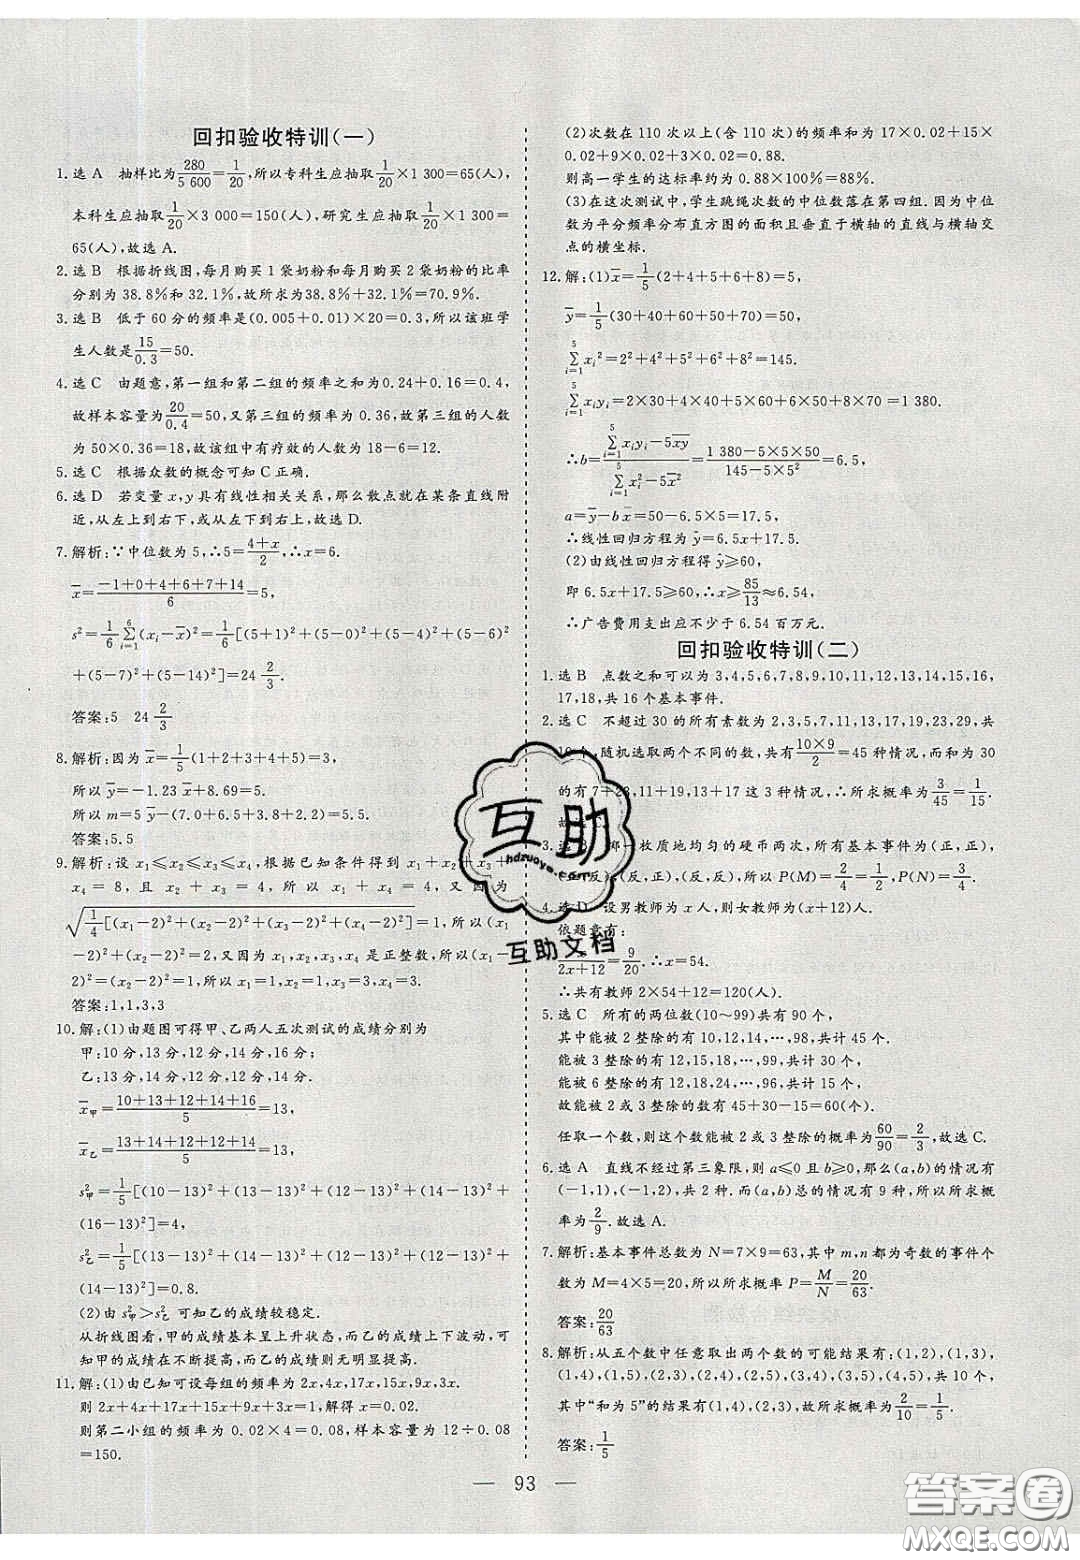 回扣验收特训(一)
1.选 A 抽样比为280/5 600=1/20,所以专科生应抽取1/20×1 300=65(人),
本科生应抽取1/20×3 000=150(人),研究生应抽取1/20×1 300=
65(人),故选 A.
2.选 B 根据折线图,每月购买 1 袋奶粉和每月购买 2 袋奶粉的比率
分别为 38.8%和 32.1%,故所求为38.8%+32.1%=70.9%.
3.选 B 低于 60 分的频率是(0.005+0.01)×20=0.3,所以该班学
生人数是15/0.3=50.
4.选 C 由题意,第一组和第二组的频率之和为0.24+0.16=0.4,
故样本容量为20/0.4=50,又第三组的频率为 0.36,故第三组的人数
为 50×0.36=18,故该组中有疗效的人数为 18-6=12.
5.选 C 根据众数的概念可知 C 正确.
6.选 D 若变量 x,y 具有线性相关关系,那么散点就在某条直线附
近,从左上到右下,或从左下到右上,故选 D.
7.解析:∵中位数为 5,∴5=(4+x)/2,∴x=6.
x̄=(-1+0+4+6+7+14)/6=5,
s²=1/6 ∑(i=1→6)(xᵢ-x̄)²=1/6[(5+1)²+(5-0)²+(5-4)²+(5-6)²
+(5-7)²+(5-14)²]=24 2/3.
答案:5 24 2/3
8.解析:因为 x̄=1/5(1+2+3+4+5)=3,
所以 ȳ=-1.23 x̄+8.69=5.
所以 m=5 ȳ-(7.0+6.5+3.8+2.2)=5.5.
答案:5.5
9.解析:设 x₁≤x₂≤x₃≤x₄,根据已知条件得到 x₁+x₂+x₃+
x₄=8,且 x₂+x₃=4,所以 x₁+x₄=4,又因为
√(1/4[(x₁-2)²+(x₂-2)²+(x₃-2)²+(x₄-2)²])=1,所以(x₁
-2)²+(x₂-2)²=2,又因为 x₁,x₂,x₃,x₄ 是正整数,所以(x₁-
2)²=(x₂-2)²=1,所以 x₁=1,x₂=1,x₃=3,x₄=3.
答案:1,1,3,3
10.解:(1)由题图可得甲、乙两人五次测试的成绩分别为
甲:10 分,13 分,12 分,14 分,16 分;
乙:13 分,14 分,12 分,12 分,14 分.
x̄甲=(10+13+12+14+16)/5=13,
x̄乙=(13+14+12+12+14)/5=13,
s²甲=1/5[(10-13)²+(13-13)²+(12-13)²+(14-13)²+
(16-13)²]=4,
s²乙=1/5[(13-13)²+(14-13)²+(12-13)²+(12-13)²+
(14-13)²]=0.8.
(2)由 s²甲>s²乙 可知乙的成绩较稳定.
从折线图看,甲的成绩基本呈上升状态,而乙的成绩上下波动,可
知甲的成绩在不断提高,而乙的成绩则无明显提高.
11.解:(1)由已知可设每组的频率为 2x,4x,17x,15x,9x,3x.
则 2x+4x+17x+15x+9x+3x=1,解得 x=0.02.
则第二小组的频率为 0.02×4=0.08,样本容量为 12÷0.08
=150.
(2)次数在 110 次以上(含 110 次)的频率和为 17×0.02+15×
0.02+9×0.02+3×0.02=0.88.
则高一学生的达标率约为 0.88×100%=88%.
(3)在这次测试中,学生跳绳次数的中位数落在第四组.因为中位
数为平分频率分布直方图的面积且垂直于横轴的直线与横轴交
点的横坐标.
12.解:(1)x̄=1/5(2+4+5+6+8)=5,
ȳ=1/5(30+40+60+50+70)=50,
∑(i=1→5)xᵢ²=2²+4²+5²+6²+8²=145.
∑(i=1→5)xᵢyᵢ=2×30+4×40+5×60+6×50+8×70=1 380.
∴b=(∑(i=1→5)xᵢyᵢ-5x̄ȳ)/(∑(i=1→5)xᵢ²-5x̄²)=(1 380-5×5×50)/(145-5×5²)=6.5,
a=ȳ-b x̄=50-6.5×5=17.5,
∴线性回归方程为 ŷ=6.5x+17.5.
(2)由线性回归方程得 ŷ≥60,
即 6.5x+17.5≥60,∴x≥85/13≈6.54,
∴广告费用支出应不少于 6.54 百万元.
回扣验收特训(二)
1.选 B 点数之和可以为 3,4,5,6,7,8,9,10,11,12,13,14,15,16,
17,18,共 16 个基本事件.
2.选 C 不超过 30 的所有素数为 2,3,5,7,11,13,17,19,23,29,共
10 个,随机选取两个不同的数,共有(10×9)/2=45 种情况,而和为 30
的有 7+23,11+19,13+17 这 3 种情况,∴所求概率为3/45=1/15.
3.选 B 一枚质地均匀的硬币两次,所有基本事件为(正,正),
反),(反,正),(反,反),所以 P(M)=2/4=1/2,P(N)=3/4.
4.选 D 设男教师为 x 人,则女教师为(x+12)人.
依题意有:
x/(2x+12)=9/20.∴x=54.
∴共有教师 2×54+12=120(人).
5.选 C 所有的两位数(10~99)共有 90 个,
其中能被 2 整除的有 10,12,14,…,98,共计 45 个,
能被 3 整除的有 12,15,18,…,99,共计 30 个,
能被 6 整除的有 12,18,24,…,96,共计 15 个,
故能被 2 或 3 整除的数有 45+30-15=60(个).
任取一个数,则这个数能被 2 或 3 整除的概率为60/90=2/3,故选 C.
6.选 A 直线不经过第三象限,则 a≤0 且 b≥0,所以(a,b)的情况有
(-1,1),(-1,2),共 2 种.而(a,b)总的情况有 9 种,所以所求概
率为2/9.故选 A.
7.解析:基本事件总数为 N=7×9=63,其中 m,n 都为奇数的事件个
数为 M=4×5=20,所以所求概率 P=M/N=20/63.
答案:20/63
8.解析:从五个数中任意取出两个数的可能结果有:(1,2),(1,3),
(1,4),(1,5),(2,3),(2,4),(2,5),(3,4),(3,5),(4,5),共 10 个,
其中“和为 5”的结果有(1,4),(2,3),故所求概率为2/10=1/5.
答案:1/5
93
互助
hdzuoye.com
互助文档
答案圈
MXQE.COM